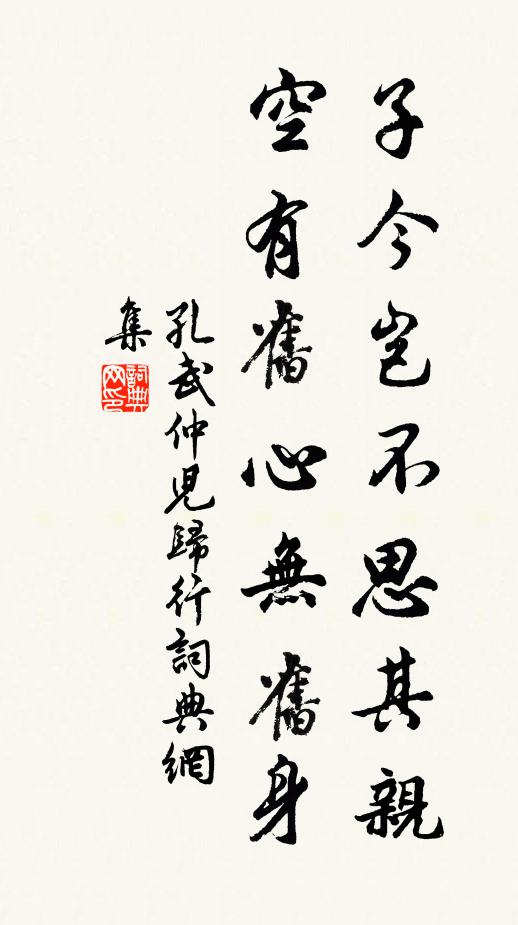 子今豈不思其親
空有舊心無舊身
孔武仲兒歸行詞典網
集
詞典
网印